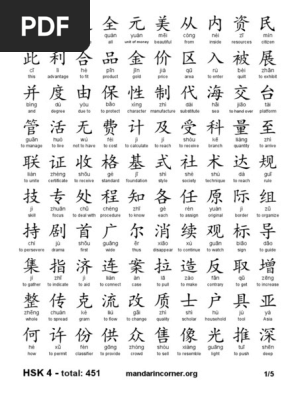 PDF
全 元 美 从 内 资 民
quán yuán měi cóng nèi zī mín
all unit of money beautiful from inside resources citizen
此 利 合 品 金 价 区 入 被 展
cǐ lì hé pǐn jīn jià qū rù bèi zhǎn
advantage to fit product gold price area to enter quilt to exhibit
并 度 由 保 性 制 代 海 交 台
bìng dù yóu bǎo xìng zhì dài hǎi jiāo tái
and degree due to to protect character manufacture substitute sea to hand over platform
管 活 无 费 计 及 受 科 量 至
guǎn huó wú fèi jì jí shòu kē liàng zhì
to manage to live not to have to cost to calculate to reach to receive branch quantity to arrive
联 证 收 格 基 式 社 术 达 规
lián zhèng shōu gé jī shì shè shù dá guī
to unite certificate to receive standard foundation style society technique to reach rule
技 专 处 程 知 各 任 原 际 组
jì zhuān chǔ chéng zhī gè rèn yuán jì zǔ
skill focus to deal with procedure to know each to assign original border to organize
持 剧 首 广 尔 消 续 观 标 导
chí jù shǒu guǎng ěr xiāo xù guān biāo dǎo
to persevere drama first wide thus disappear to continue to watch sign to guide
集 指 济 连 案 拉 造 反 取 增
jí zhǐ jì lián àn lā zào fǎn qǔ zēng
to gather to indicate to aid to connect case to pull to make contrary to get to increase
整 传 克 流 改 质 士 户 具 亚
zhěng chuán kè liú gǎi zhì shì hù jù yà
whole to spread gram to flow to change quality scholar household tool Asia
何 许 份 供 众 售 像 光 推 深
hé xǔ fèn gōng zhòng shòu xiàng guāng tuī shēn
how to permit classifier to provide crowd to sell to resemble light to push deep
HSK 4 - total: 451 mandarincorner.org 1/5